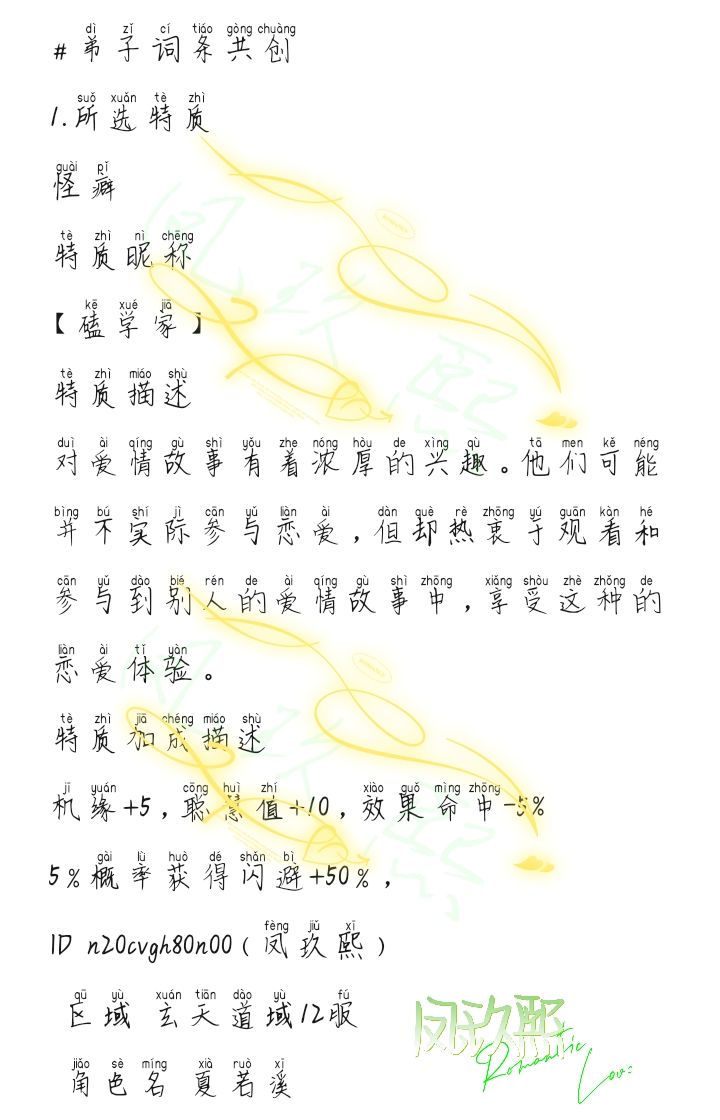 #弟子词条共创
1.所选特质
怪癖
特质昵称
【磕学家】
特质描述
对爱情故事有着浓厚的兴趣。他们可能
并不实际参与恋爱,但却热衷于观看和
参与到别人的爱情故事中,享受这种的
恋爱体验。
特质加成描述
机缘+5,聪慧值+10,效果命中-5%
5%概率获得闪避+50%,
ID n20cvgh80n00(凤玖熙)
区域 玄天道域12服
角色名 夏若溪
凤玖熙
Romantic
Love